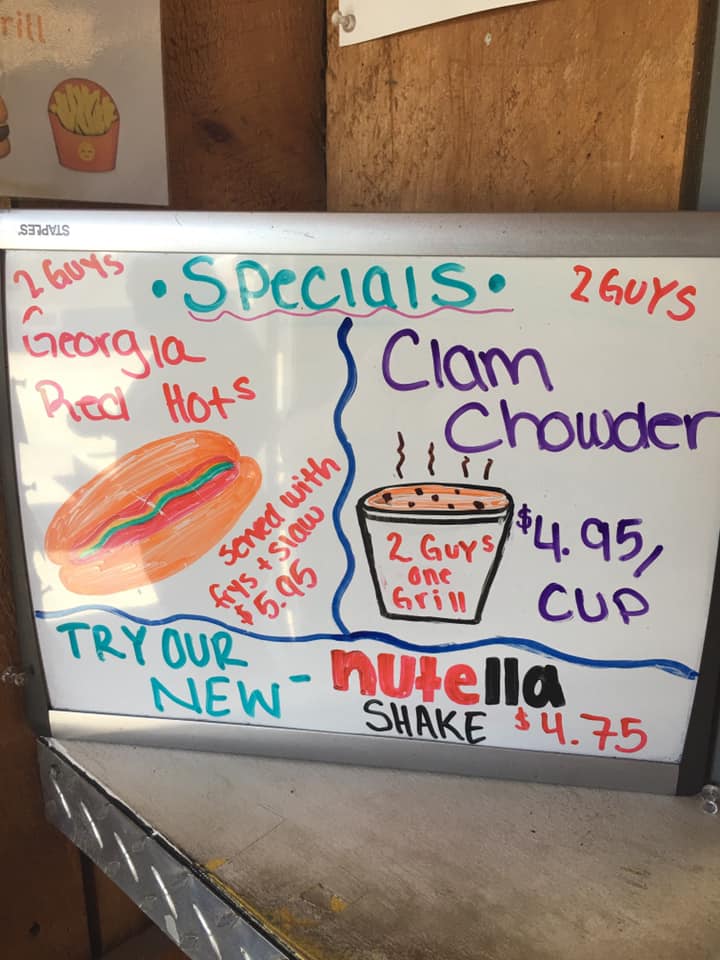 rill
STAPLES
2 Guys
• Specials •
2 GUYS
Georgia
Red Hots
served with
frys + slaw
$5.95
Clam
Chowder
2 Guys
one
Grill
$4.95/
CUP
TRY OUR
NEW-
nutella
SHAKE $4.75